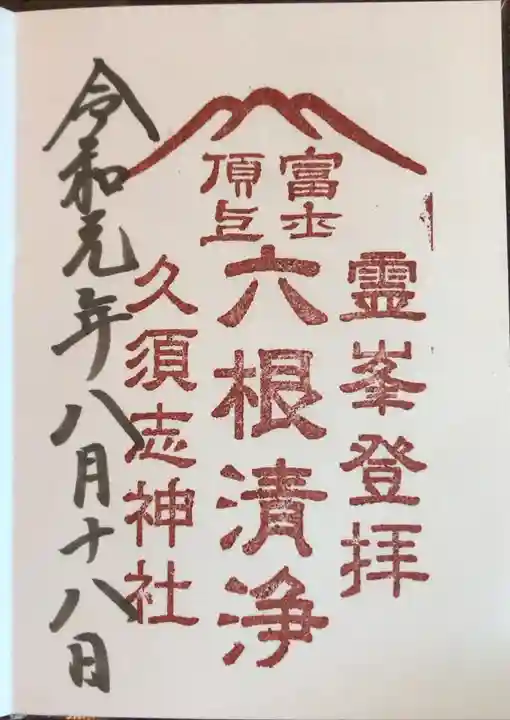 富士
頂上
霊峯登拝
六根清浄
久須志神社
令和元年八月十八日